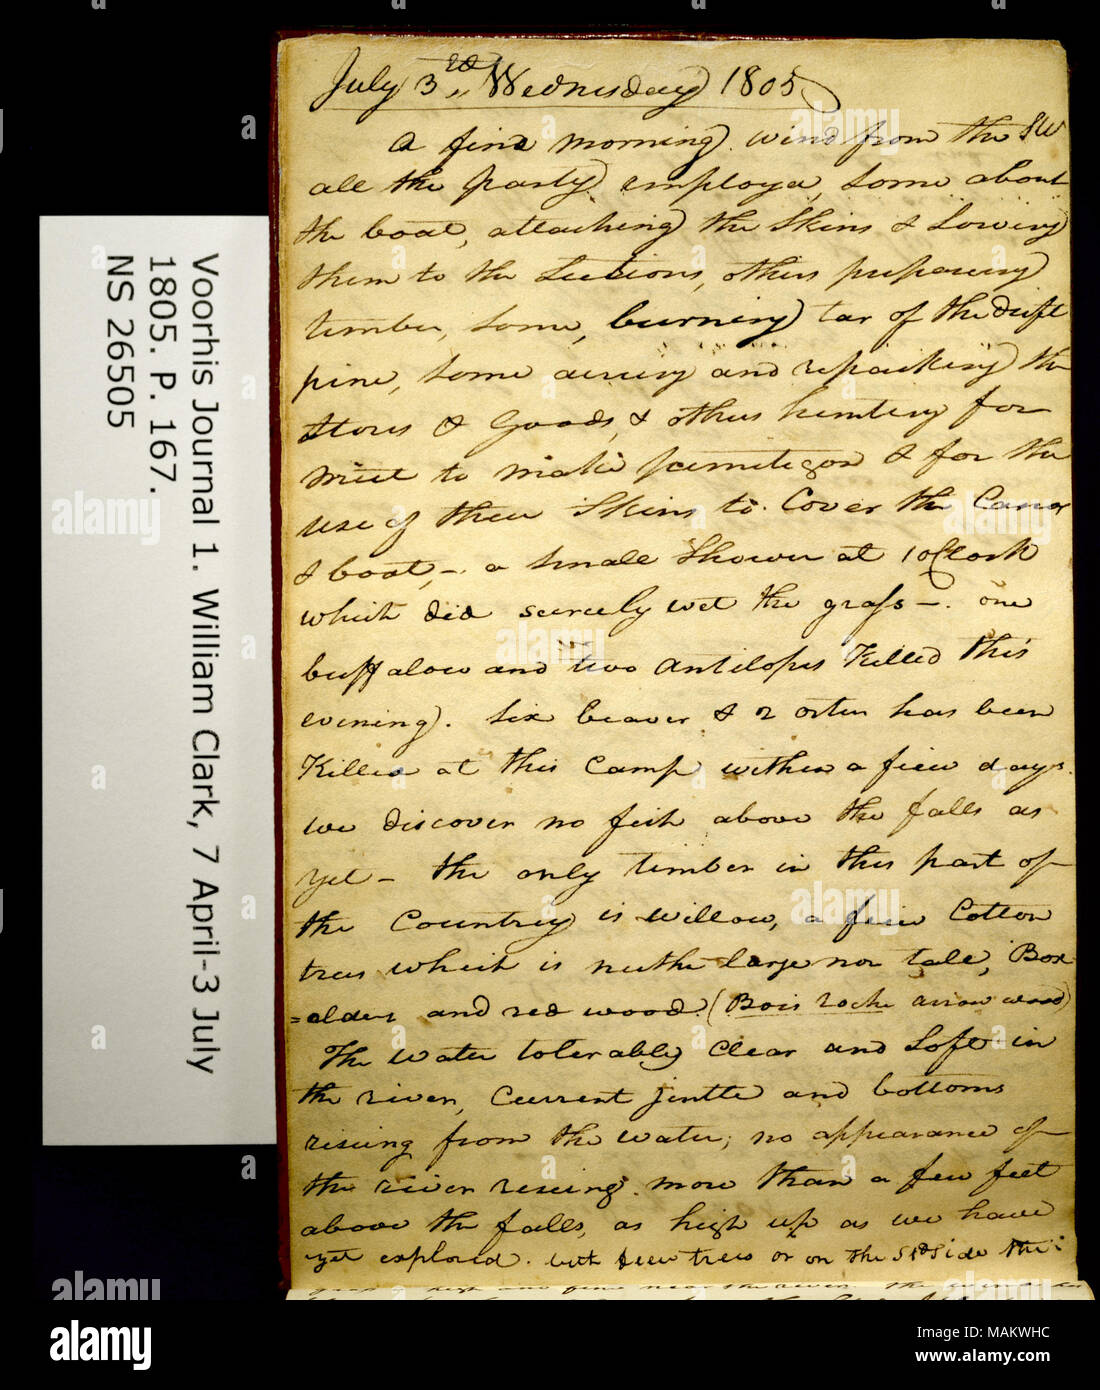 July 3rd,, Wednesday 1805
a fine morning wind from the SW
all the party employd, Some about
the boat, attaching the Skins & Sowing
them to the Sections, others prepareing
timber, Some, burning tar of the drift
pine, Some airing and repacking the
Stores & Goods, & others hunting for
Meet to make pemitigon & for the
use of their Skins to Cover the Canoe
& boat,-. a Small Shower at 1 oClock
which did scercely wet the grass-. one
buffalow and two Antilopes Killed this
evening. Six beaver & 2 otter has been
Killed at this Camp within a fiew days.
we discover no fish above the falls as
yet - the only timber in this part of
the Countrey is willow, a fiew Cotton
trees which is neither large nor tall, Box
=alder and red wood. (Bois roche arrow wood)
The water tolerably Clear and Soft in
the river, Current jentle and bottoms
riseing from the water; no appearance of
the river riseing more than a few feet
above the falls, as high up as we have
yet explored. but few trees or on the Std Side the
Voorhis Journal 1. William Clark, 7 April-3 July
1805. P. 167.
NS 26505
alamy
Image ID: MAKWHC
www.alamy.com